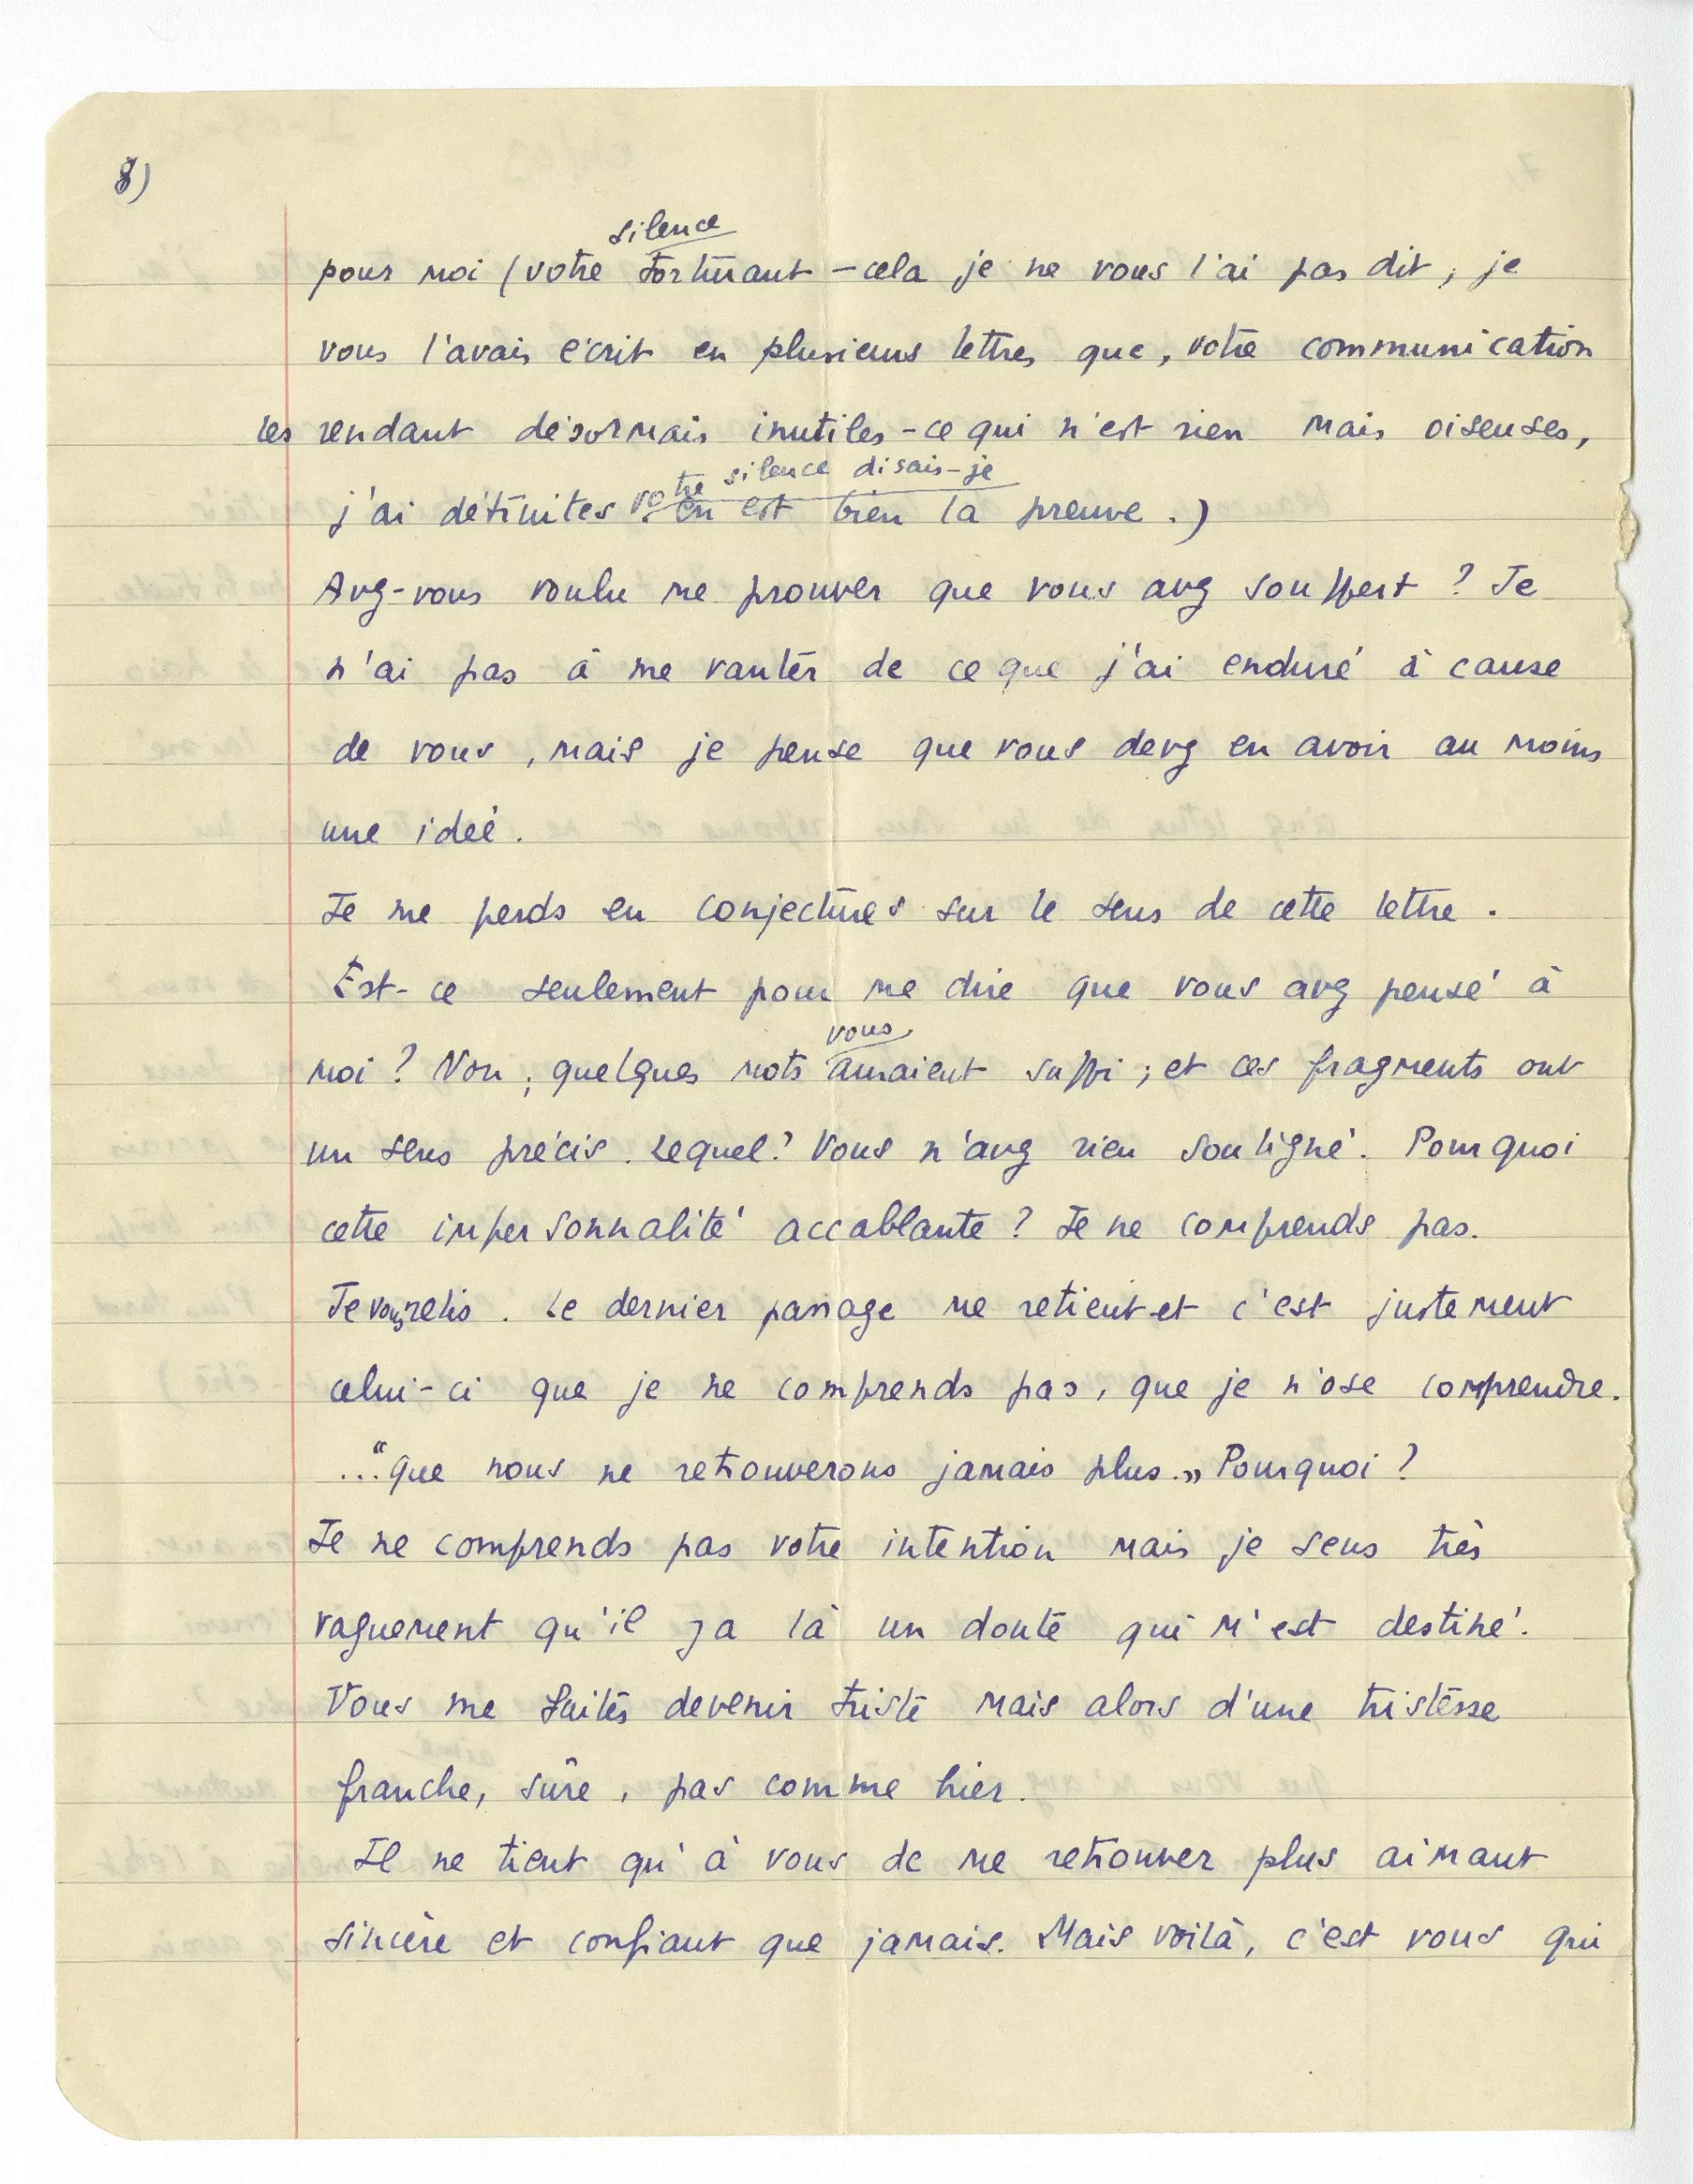 8)
silence
pour moi (votre torturant – cela je ne vous l'ai pas dit, je
vous l'avais écrit en plusieurs lettres que, votre communication
les rendant désormais inutiles – ce qui n'est rien mais oiseuses,
votre silence disais-je
j'ai détruites en est bien la preuve.)
Avez-vous voulu me prouver que vous avez souffert ? Je
n'ai pas à me vanter de ce que j'ai enduré à cause
de vous, mais je pense que vous devez en avoir au moins
une idée.
Je me perds en conjectures sur le sens de cette lettre.
Est-ce seulement pour me dire que vous avez pensé à
vous
moi ? Non, quelques mots auraient suffi ; et ces fragments ont
un sens précis. Lequel ? Vous n'avez rien souligné. Pourquoi
cette impersonnalité accablante ? Je ne comprends pas.
Je vous relis. Le dernier passage me retient et c'est justement
celui-ci que je ne comprends pas, que je n'ose comprendre.
..."que nous ne retrouverons jamais plus.» Pourquoi ?
Je ne comprends pas votre intention mais je sens très
vaguement qu'il y a là un doute qui m'est destiné.
Vous me faites devenir triste mais alors d'une tristesse
franche, sûre, pas comme hier.
Il ne tient qu'à vous de me retrouver plus aimant
sincère et confiant que jamais. Mais voilà, c'est vous qui